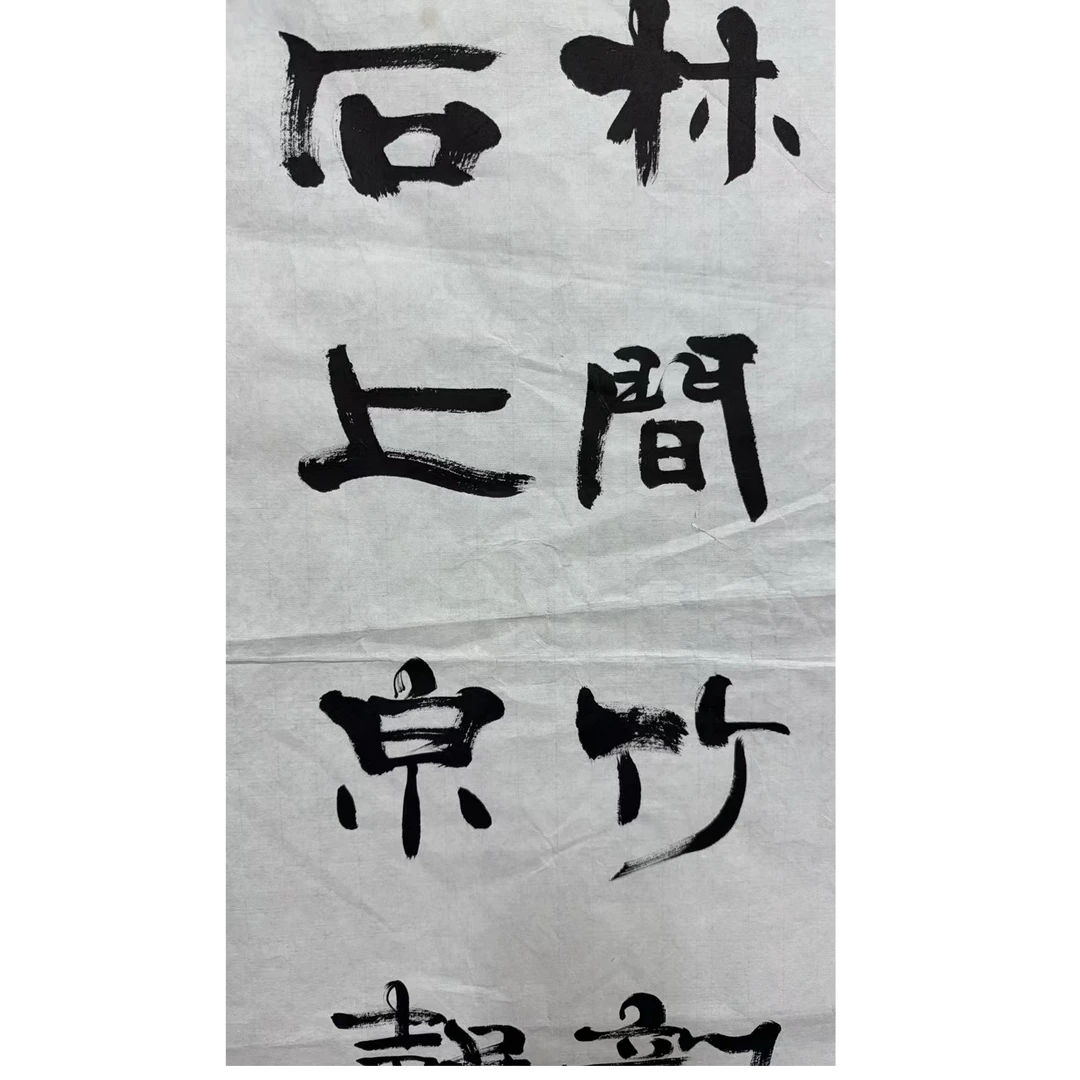 林間竹
石上泉